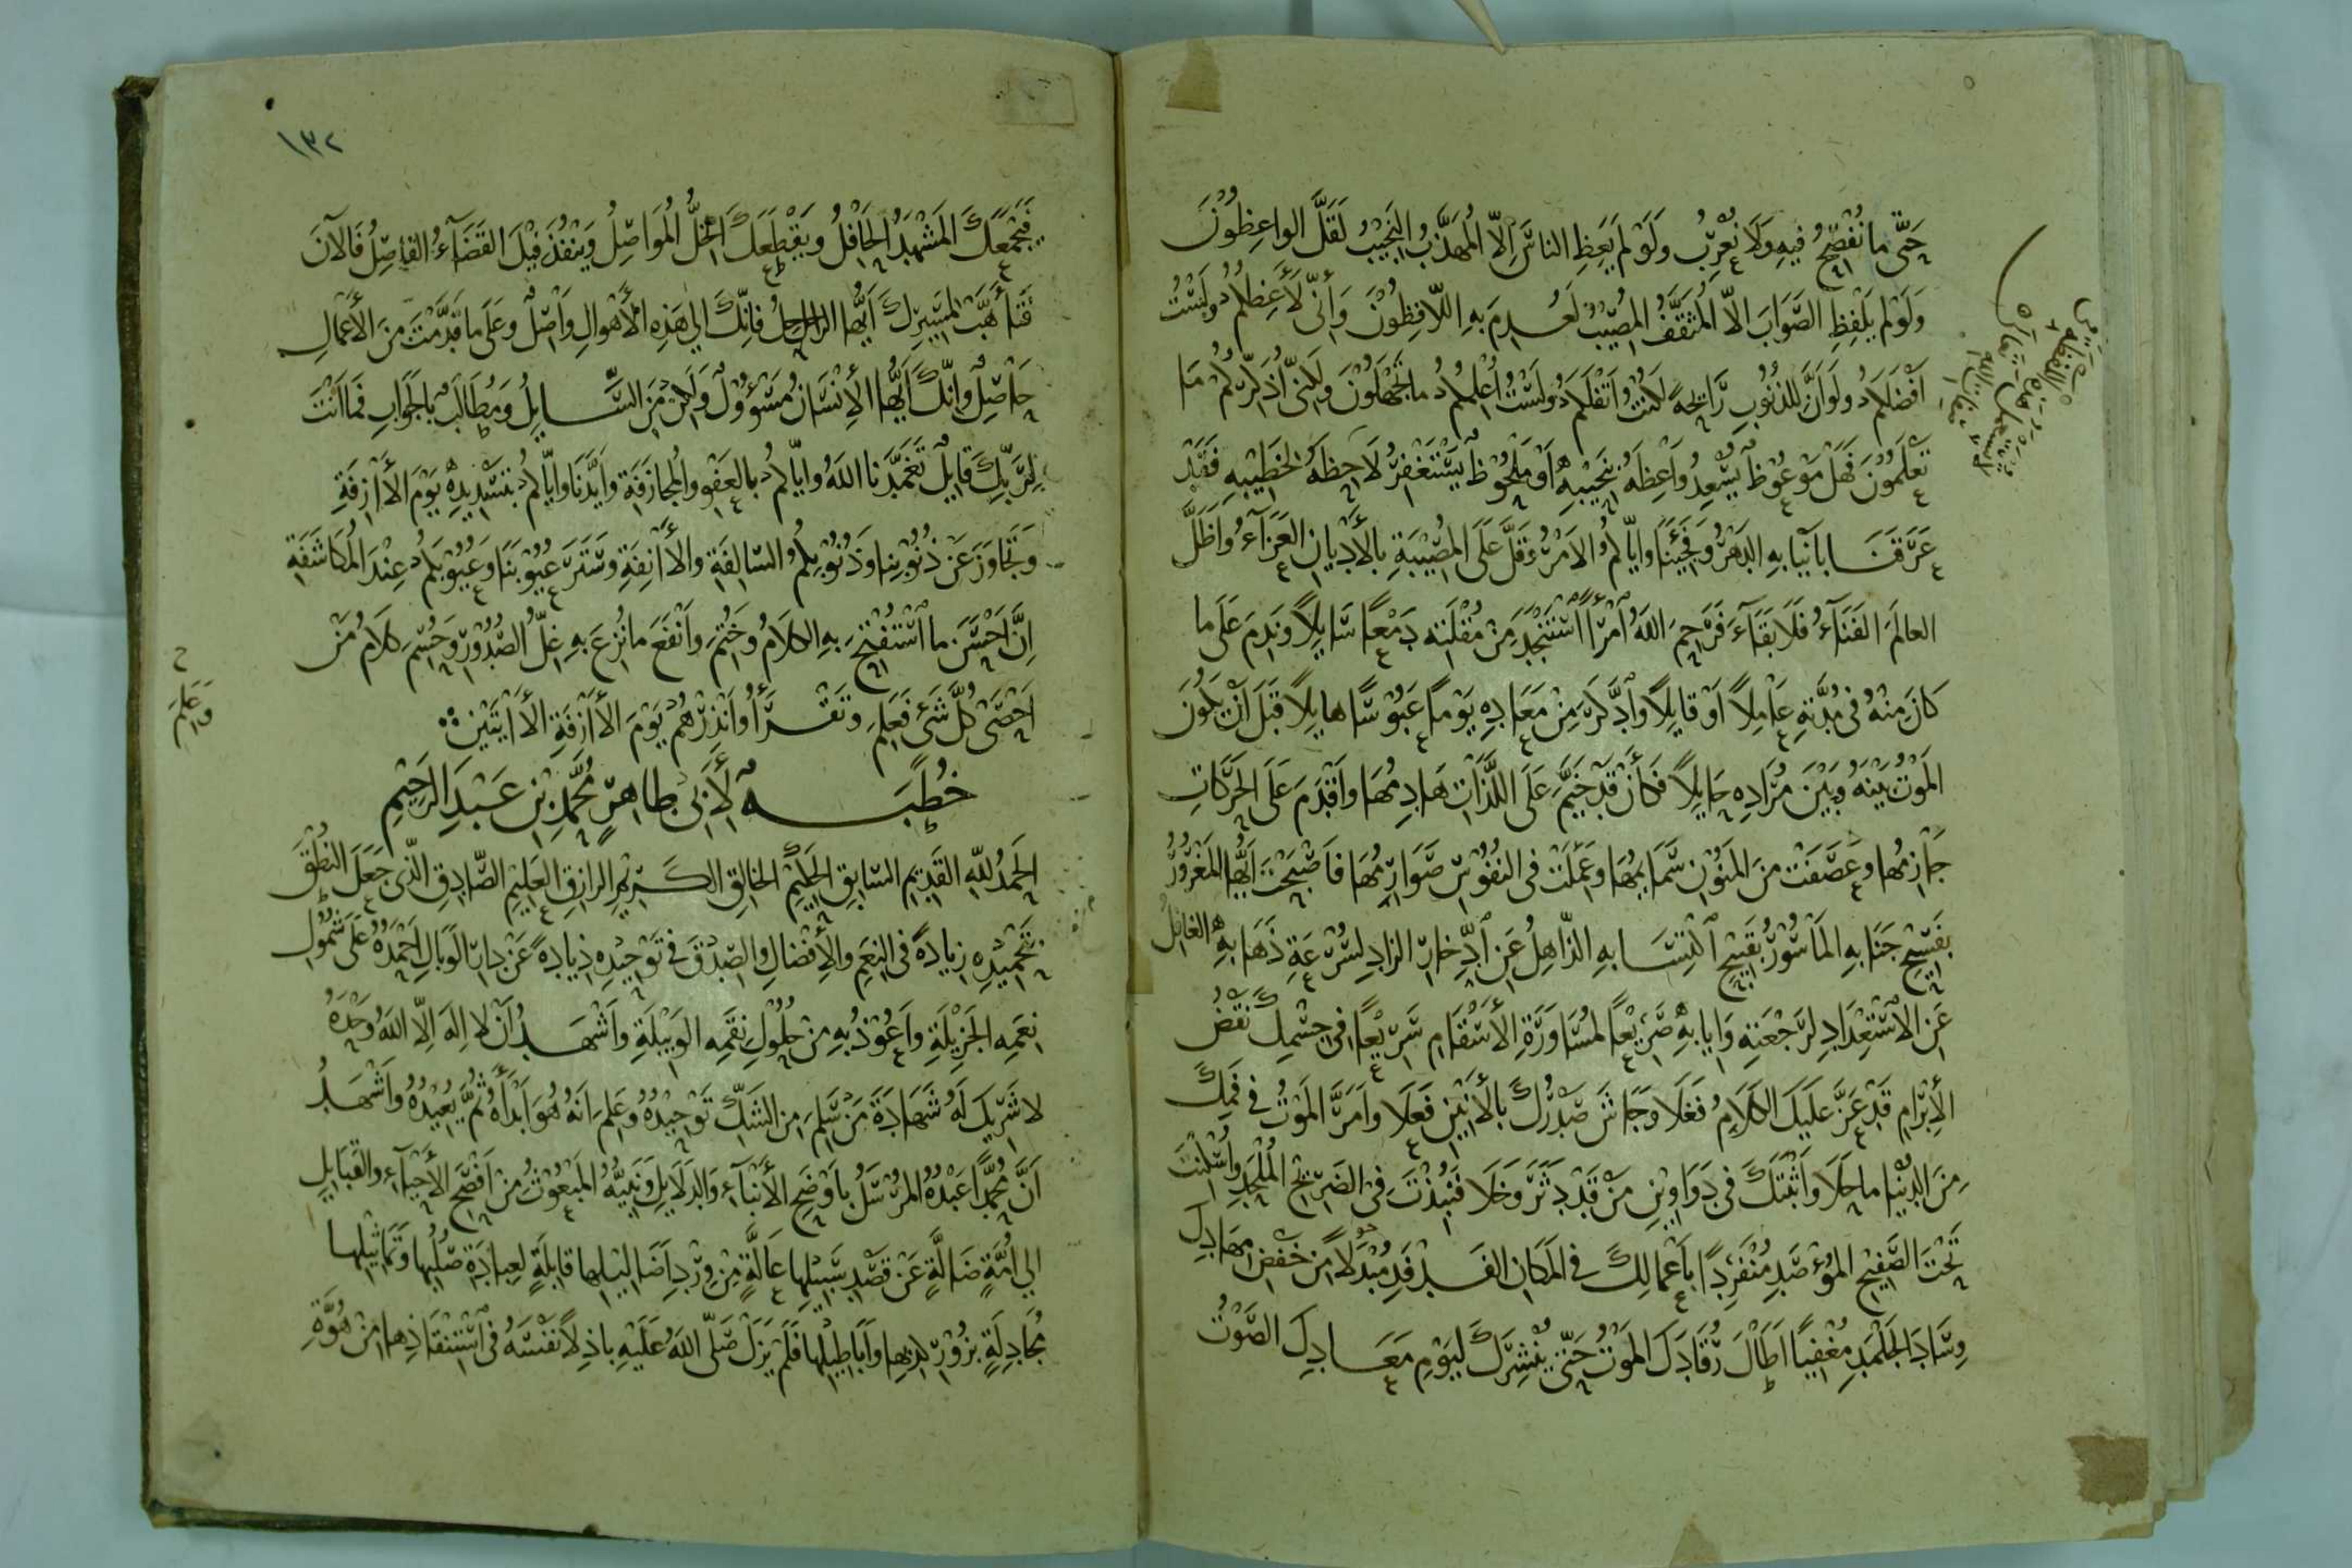 حَتَّى ما نُفْصِحُ فيهِ وَلَا نُعْرِبُ وَلَوْ لم يَعِظِ الناسَ اِلّا المُهَذَّبُ النَجِيْبُ لَقَلَّ الواعِظُوْنَ
وَلَوْ لم يَلْفِظِ الصَّوَابَ الاّ المُثَقَّفُ المُصِيْبُ لَعُدِمَ بهِ اللّافِظُوْنَ وَأنّى لَأَعِظُكُمْ ولَسْتُ
أَفْضَلَكُمْ ولَوْ أَنَّ لِلذُنُوبِ رَائِحَةً لَكُنْتُ أَثْقَلَكُمْ ولَسْتُ أُعْلِمُكُمْ ما تَجْهَلُوْنَ ولَكِنّى أُذَكِّرُكُمْ مَا
تَعْلَمُوْنَ فَهَلْ مَوْعُوْظٌ يُسْعِدُ وَاعِظَهُ بنَحِيْبِهِ اَوْ مَلْحُوْظٌ يَسْتَغْفِرُ لَاحِظَهُ لخَطِيْبِهِ فَقَدْ
عَرَّفَنَا بأنْيَابِهِ الدَهْرُ وَفَجِئَنَا وايّاكُمُ الاَمْرُ وَقَلَّ عَلَى المُصِيْبَةِ بالأَدْيانِ العَزَآءُ وَاَظَلَّ
العالَمَ الفَنَآءُ فَلَا بَقَآءَ فَرَحِمَ اللهُ امْرَأً اسْتَنْجَدَ مِنْ مُقْلَتِهِ دَمْعًا سَايِلًا وَنَدِمَ عَلَى ما
كَانَ مِنْهُ فى مُدَّتِهِ عَامِلًا اَوْ قايِلًا وَاَدَّكَرَ مِنْ مَعَادِهِ يَوْمًا عَبُوْسًا هايِلًا قَبْلَ اَنْ يَكُوْنَ
المَوْتُ بَيْنَهُ وبَيْنَ مُرَادِهِ حَايِلًا فَكَأَنْ قَدْ خَيَّمَ عَلَى اللَّذَّاتِ هَادِمُهَا وَاَقْدَمَ عَلَى الحَرَكَاتِ
جَازِمُها وعَصَفَتْ مِنَ المَنُوْنِ سَمَايِمُهَا وعَمِلَتْ فى النُفُوْسِ صَوَارِمُهَا فَاَصْبَحْتَ ايُّها المَغْرُوْرُ
بفَسِيْحِ جَنَابِهِ المَأسُوْرُ بقَبِيْحِ اكْتِسَابِهِ الذّاهِلُ عَنِ اَدِّخارِ الزادِ لسُرْعَةِ ذَهَابِهِ الغافلُ
عَنِ الاسْتِعْدَادِ لرَجْعَتِهِ وَايابِهِ صَرِيْعًا لمُسَاوَرَةِ الأَسْقَامِ سَرِيْعًا فى جِسْمِكَ نَقْضُ
الأِبْرَامِ قَدْ عَزَّ عَلَيْكَ الكَلَامُ فَغَلَا وَجَاشَ صَدْرُكَ بالأَنِيْنِ فَعَلَا وأَمَرَّ المَوْتُ فى فَمِكَ
مِنَ الدُنْيا ما حَلَا وَأَثْبَتَكَ فى دَوَاوِيْنِ مَنْ قَدْ دَثَرَ وَخَلَا فَنُبِذْتَ فى الضَرِيْحِ المُلْحَدِ وأُسْكِنْتَ
تَحْتَ الصَّفِيْحِ المُوْصَدِ مُنْفَرِدًا بأَعْمَالِكَ فى المَكَانِ الفَدْفَدِ مُبْدَلًا مِنْ خَفْضِ مهَادِكَ
وِسَادَ الجَلْمَدِ مُغْفِيًا اَطَالَ رُقَادَكَ المَوْتُ حَتّى يُنْشِرَكَ ليَوْمِ مَعَادِكَ الصَّوْتُ
١٣٢
فَيَجْمَعَكَ المَشْهَدُ الحَافِلُ وَيَقْطَعَكَ الخِلُّ المُوَاصِلُ وَيَنْفُذَ فِيْكَ القَضَآءُ الفَاصِلُ فَالآنَ
فَتَأَهَّبْ لمَسِيْرِكَ اَيُّها الراحِلُ فَانّكَ الى هَذِهِ الأَهْوَالِ وَاصِلٌ وعَلَى ما قَدَّمْتَ مِنَ الأَعْمَالِ
حَاصِلٌ وانّكَ أَيُّها الأِنْسَانُ مَسْؤُوْلٌ وَلَكِنْ مَنِ السَّايِلُ ومُطَالَبٌ بالجَوَابِ فَمَا اَنْتَ
لِرَبِّكَ قَايِلٌ تَغَمَّدَنا اللهُ وايّاكُمْ بالعَفْوِ والمُجازَفَةِ وأَيَّدَنَا وايّاكُمْ بتَسْدِيْدِهِ يَوْمَ الاَازِفَةِ
وَتَجَاوَزَ عَنْ ذُنُوْبِنا وَذُنُوْبِكُمُ السّالِفَةِ والأَانِفَةِ وسَتَرَ عُيُوْبَنَا وعُيُوْبَكُمْ عِنْدَ المُكَاشَفَةِ
اِنَّ اَحْسَنَ ما اُسْتُفْتِحَ بِهِ الكَلَامُ وَخُتِمَ وَاَنْفَعَ ما نُزِعَ بهِ غِلُّ الصُدُوْرِ وحُسِمَ كَلَامُ مَنْ
اَحْصَى كُلَّ شَىْءٍ فَعَلِمَ وتَقْرَأُ وَاَنْذِرْهُمْ يَوْمَ الأَازِفَةِ الأَايَتَيْنِ
خُطْبَةٌ لأَبى طاهِرٍ مُحَمَّدِ بْنِ عَبْدِ الرَحِيْمِ
الحَمْدُ للهِ القَدِيْمِ السّابِقِ الحَلِيْمِ الخَالِقِ الكَرِيْمِ الرازِقِ العَلِيْمِ الصّادِقِ الّذى جَعَلَ النُطْقَ
بتَحْمِيْدِهِ زِيادَةً فى النِعَمِ والأِفْضَالِ والصِدْقَ فى تَوْحِيْدِهِ ذِيَادَةً عَنْ دارِ الوَبَالِ اَحْمَدُهُ عَلَى شُمُوْلِ
نِعَمِهِ الجَزِيْلَةِ واَعُوْذُ بهِ مِنْ حُلُوْلِ نِقَمِهِ الوَبِيْلَةِ وَاَشْهَدُ اَنْ لا اِلهَ اِلّا اللهُ وَحْدَهُ
لا شَرِيْكَ لَهُ شَهَادَةَ مَنْ سَلِمَ مِنَ الشَكِّ تَوْحِيْدُهُ وعَلِمَ انّهُ هُوَ اَبْدَأَهُ ثُمَّ يُعِيْدُهُ وَاَشْهَدُ
اَنَّ مُحَمَّدًا عَبْدُهُ المُرْسَلُ بأَوْضَحِ الأَنْبَآءِ والدَلَايِلِ وَنَبِيُّهُ المَبْعُوْثُ مِنْ اَفْصَحِ الأَحْيَآءِ والقَبَايِلِ
الى اُمَّةٍ ضَالَّةٍ عَنْ قَصْدِ سَبِيْلِها عَالَّةٍ مِنْ وِرْدِ اَضَالِيْلِها قابِلَةٍ لعِبادَةِ صُلُبِها وتَمَاثِيْلِها
مُجَادِلَةٍ بزُوْرِ كِذبها وأَبَاطِيْلِها فَلَمْ يَزَلْ صَلّى اللهُ عَلَيْهِ باذِلًا نَفْسَهُ فى اسْتِنْقَاذِها مِنْ هُوَّةِ
وَاعْلَمَ